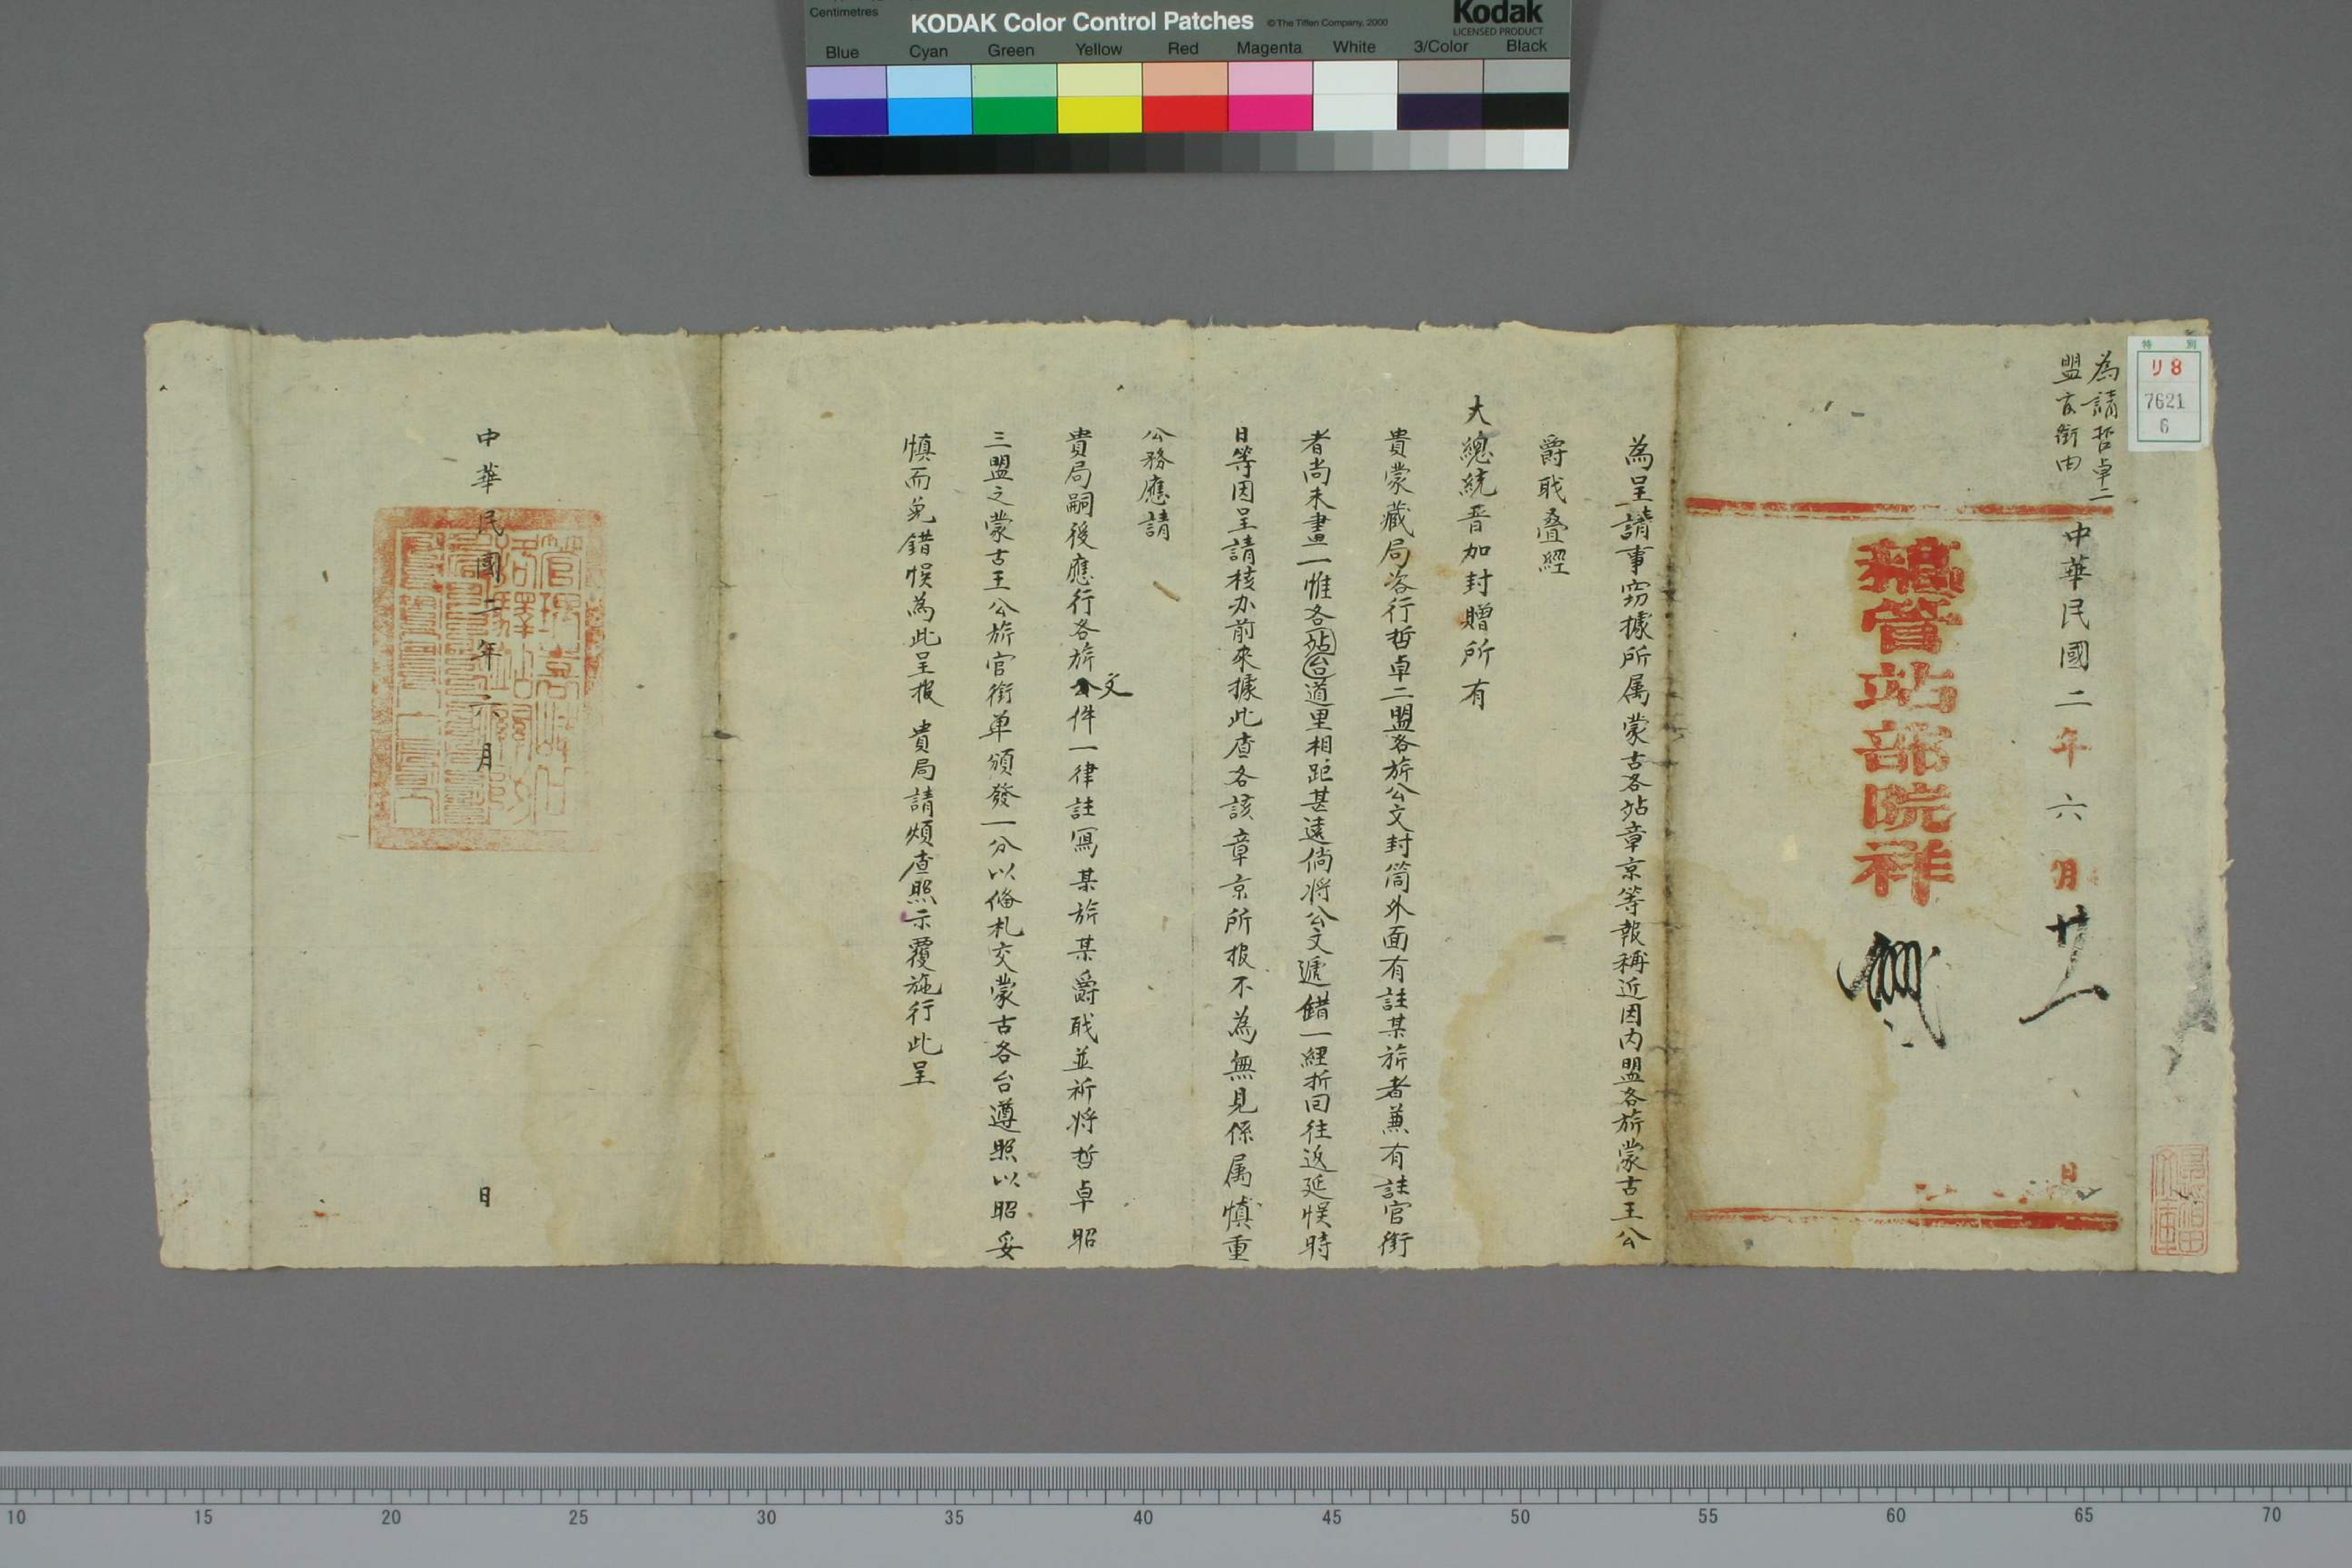 Centimetres
KODAK Color Control Patches
© The Tiffen Company, 2000
Kodak
LICENSED PRODUCT
Blue Cyan Green Yellow Red Magenta White 3/Color Black
特別
リ8
7621
6
為請哲卓二
盟官銜由
中華民國二年六月廿 日
總管站部院祥
為呈請事窃據所属蒙古各站章京等報稱近因内盟各旂蒙古王公
爵戢叠經
大總統晋加封贈所有
貴蒙藏局咨行哲卓二盟各旂公文封筒外面有註某旂者兼有註官銜
者尚未畫一惟各站台道里相距甚遠倘将公文遞錯一經折回往返延悮時
日等因呈請核办前來據此查各該章京所报不為無見係属慎重
公務應請
貴局嗣後應行各旂文件一律註寫某旂某爵戢並祈将哲卓昭
三盟之蒙古王公旂官銜单頒發一分以偹札交蒙古各台遵照以昭妥
慎而免錯悮為此呈报 貴局請煩查照示覆施行此呈
中華民國二年六月 日
10 15 20 25 30 35 40 45 50 55 60 65 70